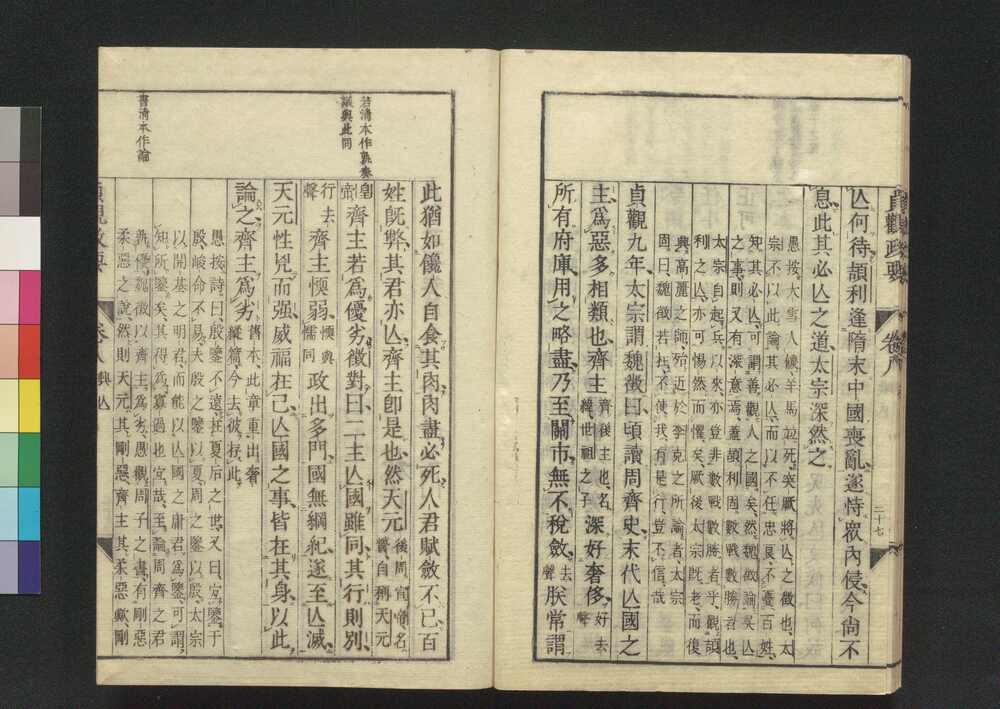 貞觀政要 卷八 三十七
亾何待頡利逢隋末中國喪亂遂恃衆內侵今尙不
息此其必亾之道太宗深然之
愚按大雪人饑羊馬並死突厥將亾之徵也太
宗不以此論其必亾而以不任忠良不憂百姓
知其必亾可謂善觀人之國矣然魏徵論突亾
之事則又有深意焉蓋頡利固數戰數勝者也
太宗自起兵以來亦豈非數戰數勝者乎觀頡
利之亾亦可惕然而懼矣厥後太宗旣老而復
興高麗之師殆近於李克之所論者太宗
固曰魏徵若在不使我有是行豈不信哉
貞觀九年太宗謂魏徵曰頃讀周齊史末代亾國之
主爲惡多相類也齊主齊後主也名緯世祖之子深好奢侈好去聲
所有府庫用之略盡乃至關市無不稅斂去聲朕常謂
此猶如饞人自食其肉肉盡必死人君賦斂不已百
姓旣弊其君亦亾齊主卽是也然天元後周宣帝名贇自稱天元
皇帝齊主若爲優劣徵對曰二主亾國雖同其行則別
行去聲齊主懦弱懦與儒同政出多門國無綱紀遂至亾滅
天元性兇而强威福在己亾國之事皆在其身以此
論之齊主爲劣舊本此章重出奢縱篇今去彼存此
愚按詩曰殷鑒不遠在夏后之世又曰宜鑒于
殷峻命不易夫殷之鑒以夏周之鑒以殷太宗
以開基之明君而能以亾國之庸君爲鑒可謂
知所鑒矣其得爲寡過也宜哉至論周齊之君
而魏徵以齊主爲劣愚觀周子之書有剛惡
柔惡之說然則天元其剛惡齊主其柔惡歟剛
貞觀政要 卷八 興亾
若淸本作孰奏
議與此同
書淸本作論